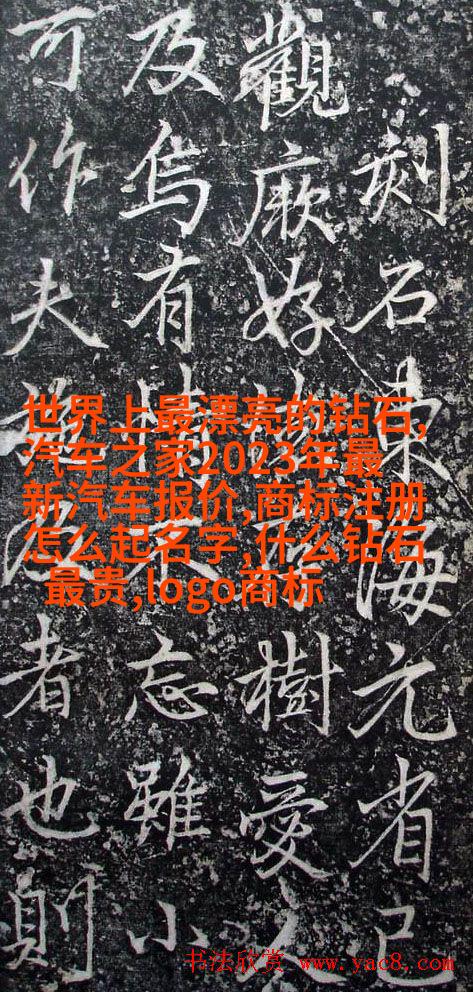 刻石東海元省已
觀厥好樹愛
及焉有不忘雖小
可作夫者也則
世界上最漂亮的钻石,
汽车之家2023年最
新汽车报价,商标注册
怎么起名字,什么钻石
最贵,logo商标
书法欣赏 www.yac8.com